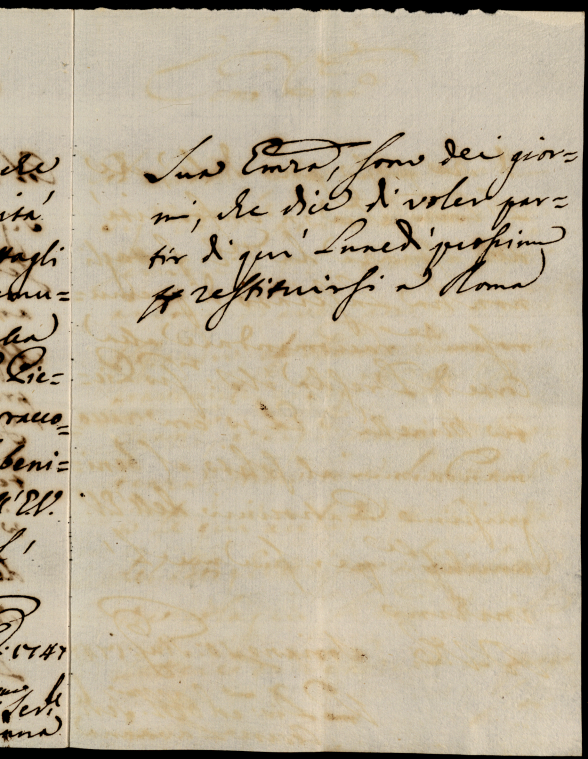 che
ità
tagli
mu=
ba
Pie=
racco=
beni=
l'E.V.
1747
Sua Emza, sono dei gior=
ni, che dice di voler par=
tir di qui Lunedì prossimo
per restituirsi a Roma